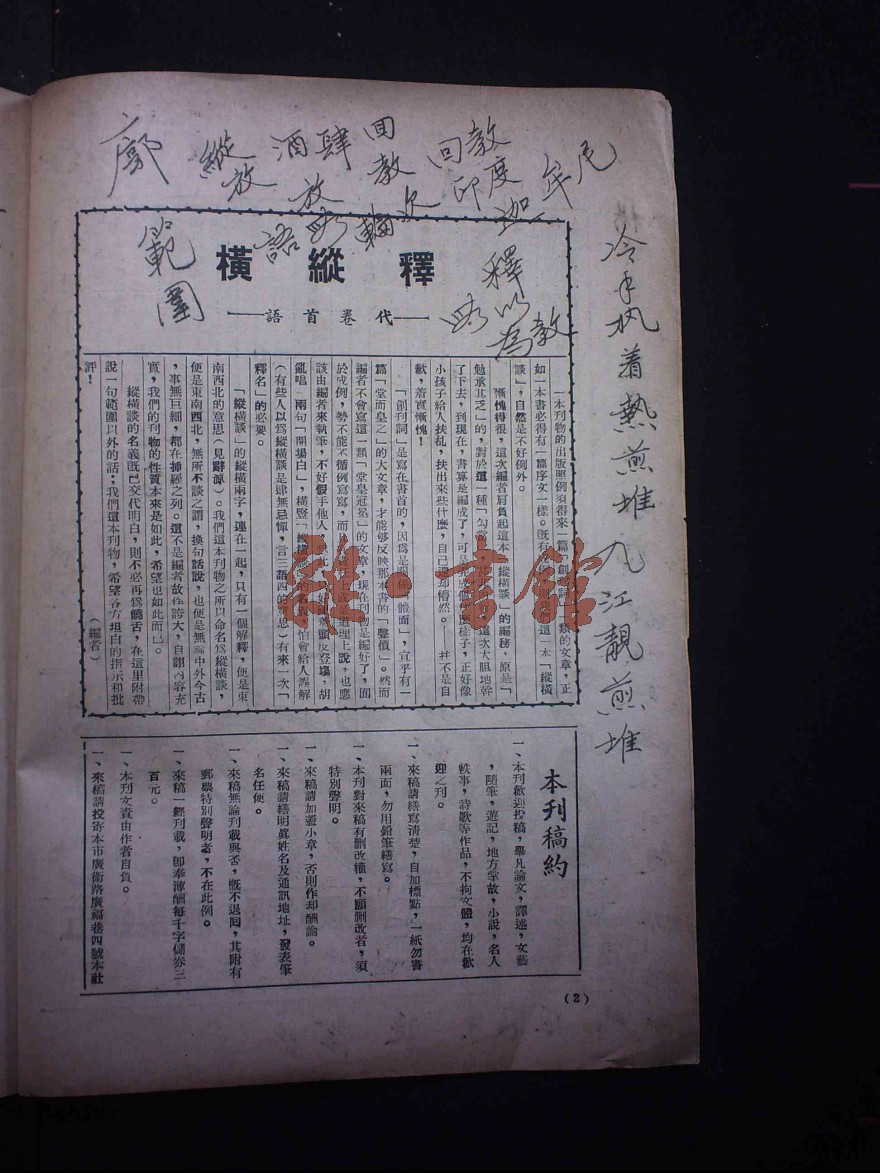 廓 縱放 酒肆 回教 回教 印度
範圍
釋以為教
冷手执着熱煎堆九江靚煎堆
釋縱橫
——代卷首語——
一本刊物的出版照例須得來一篇「創
類的文章，正
如一本書必得有一篇序文一樣。既有
這一本「縱橫
談」，自然是不好例外。
慚愧得很，這次編者肩負起這本「縱橫談」的編務，原是「
勉承其乏」的，對於這一種「勾當
這次大胆地幹
了下去，到現在，書算是編成了，可是
樣子，正好像
小孩子給人扶乩，扶出來些什麼，自己
却懵然。——幷不是自
歉，着實慚愧！
「創刊詞」是寫在書首的，因為是
體面」，宜乎有一
篇「堂而皇之」的大文章，才能够反映那
書的「聲價」。然而
編者不會寫這一類「堂皇冠冕」的文章，現在刊物是編好了，囿
於成例，勢不能不循例寫寫，而
道理上說，也應
該由編者來執筆，不好假手他人，
頭皮登塲，胡
亂唱兩句「開塲白」，橫豎「縱橫
怕會給人誤解
（有些人以爲縱橫談是肆無忌憚，言三語四的意思）有來一次「
釋名」的必要。
「縱橫談」的縱橫兩字，連在一起，只有一個解釋，便是東
南西北的意思（見辭源）。我們這本刊物之所以命名爲縱橫談，
便是東南西北，無所不談之謂，換句話說，也便是無論中外今古
，事無巨細，都在揷
之列。這不是編者故作誇大，自詡內容充
實，我們的刊物的性質本來是如此，希望也如此而已。
縱橫談的名義既已交代明白，則不必再爲饒舌，在這里附帶
說一句範圍以外的話；我們這本刊物，希望各方坦白的指示和批
評！
（編者）
本刊稿約
一、本刊歡迎投稿，舉凡論文，譯述，文藝
，隨筆，遊記，地方掌故，小說，名人
軼事，詩歌等作品，不拘文體，均在歡
迎之列。
一、來稿請繕寫清楚，自加標點，一紙勿書
兩面，勿用鉛筆繕寫。
一、本刊對來稿有删改權，不願删改者，須
特別聲明。
一、來稿請加蓋小章，否則作却酬論。
一、來稿請繕明眞姓名及通訊地址，發表筆
名任便。
一、來稿無論刊載與否，概不退囘，其附有
郵票特別聲明者，不在此例。
一、來稿一經刊載，卽奉薄酬每千字儲劵三
百元。
一、本刊文責由作者自負。
一、來稿請投寄本市廣衛路廣福巷四號本社
(2)
雜·書館